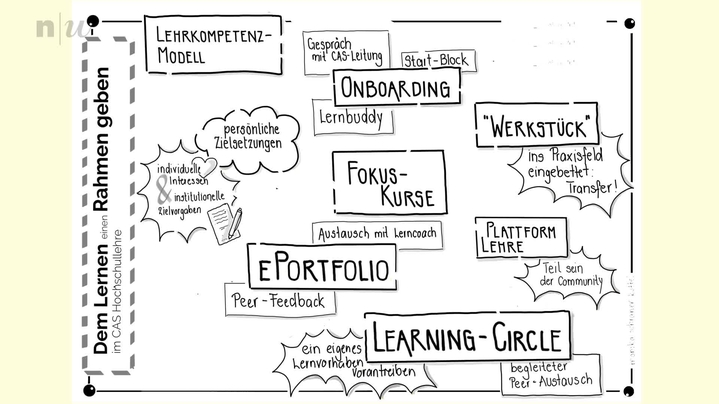 n|w
Dem Lernen einen Rahmen geben
im CAS Hochschullehre
LEHRKOMPETENZ-
MODELL
Gespräch
mit CAS-Leitung
Start-Block
ONBOARDING
Lernbuddy
persönliche
Zielsetzungen
individuelle
Interessen
& institutionelle
Zielvorgaben
"WERKSTÜCK"
Ins Praxisfeld
eingebettet:
Transfer!
FOKUS-
KURSE
Austausch mit Lerncoach
PLATTFORM
LEHRE
Teil sein
der Community
ePORTFOLIO
Peer-Feedback
LEARNING-CIRCLE
ein eigenes
Lernvorhaben
vorantreiben
begleiteter
Peer-Austausch